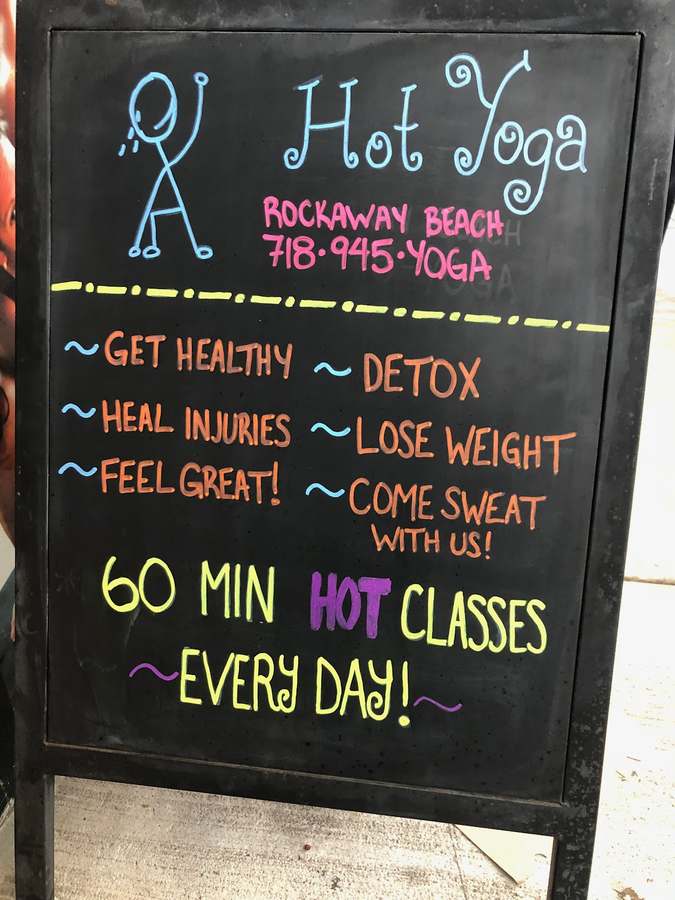 Hot Yoga
ROCKAWAY BEACH
718·945·YOGA
~GET HEALTHY
~HEAL INJURIES
~FEEL GREAT!
~DETOX
~LOSE WEIGHT
~COME SWEAT
WITH US!
60 MIN HOT CLASSES
~EVERY DAY!~